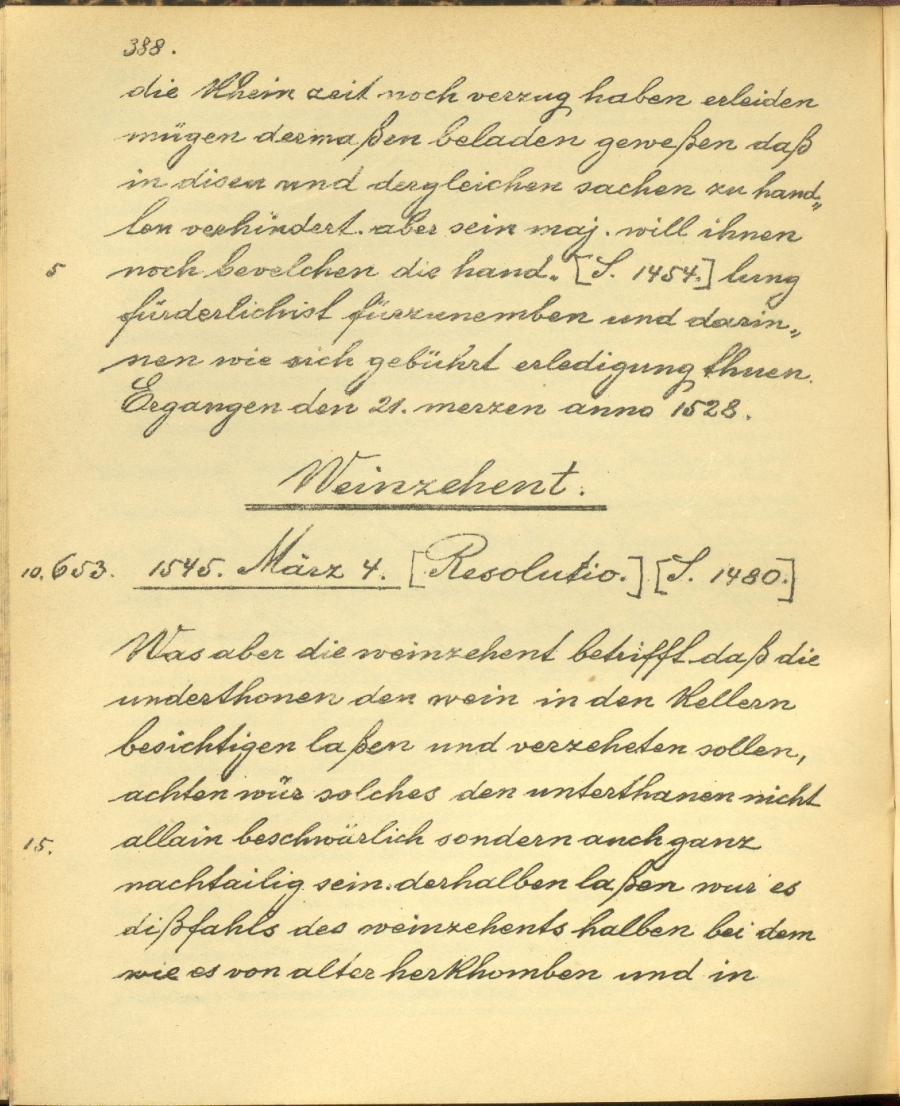 388.
die khein zeit noch verzug haben erleiden
mügen dermaßen beladen geweßen daß
in disen und dergleichen sachen zu hand„
len verhindert. aber sein maj. will ihnen
5 noch bevelchen die hand„ [S. 1454.] lung
fürderlichist fürzunemben und darin„
nen wie sich gebührt erledigung thuen.
Ergangen den 21. merzen anno 1528.
Weinzehent.
10. 653. 1545. März 4. [Resolutio.] [S. 1480.]
Was aber die weinzehent betrifft daß die
underthonen den wein in den Kellern
besichtigen laßen und verzeheten sollen,
achten wür solches den unterthanen nicht
15. allain beschwärlich sondern auch ganz
nachtailig sein. derhalben laßen wur es
dißfahls des weinzehents halben bei dem
wie es von alter herkhomben und in